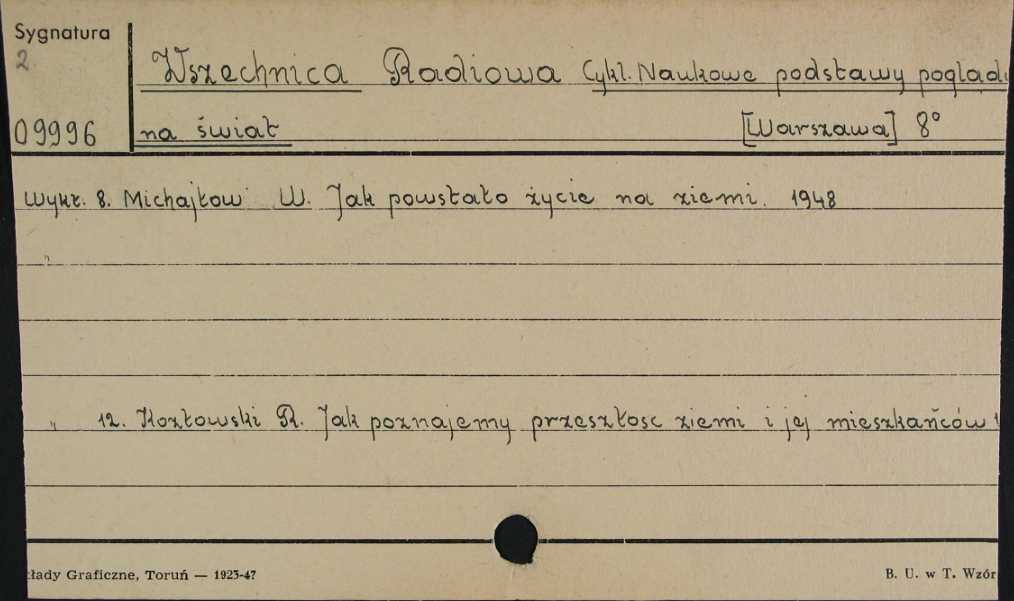 Sygnatura
2
Wszechnica Radiowa Cykl. Naukowe podstawy poglądu
09996 na świat [Warszawa] 8°
Wykł. 8. Michajłow W. Jak powstało życie na ziemi. 1948
"
" 12. Kozłowski R. Jak poznajemy przeszłosc ziemi i jej mieszkańców 1
kłady Graficzne, Toruń — 1923-47 B. U. w T. Wzór